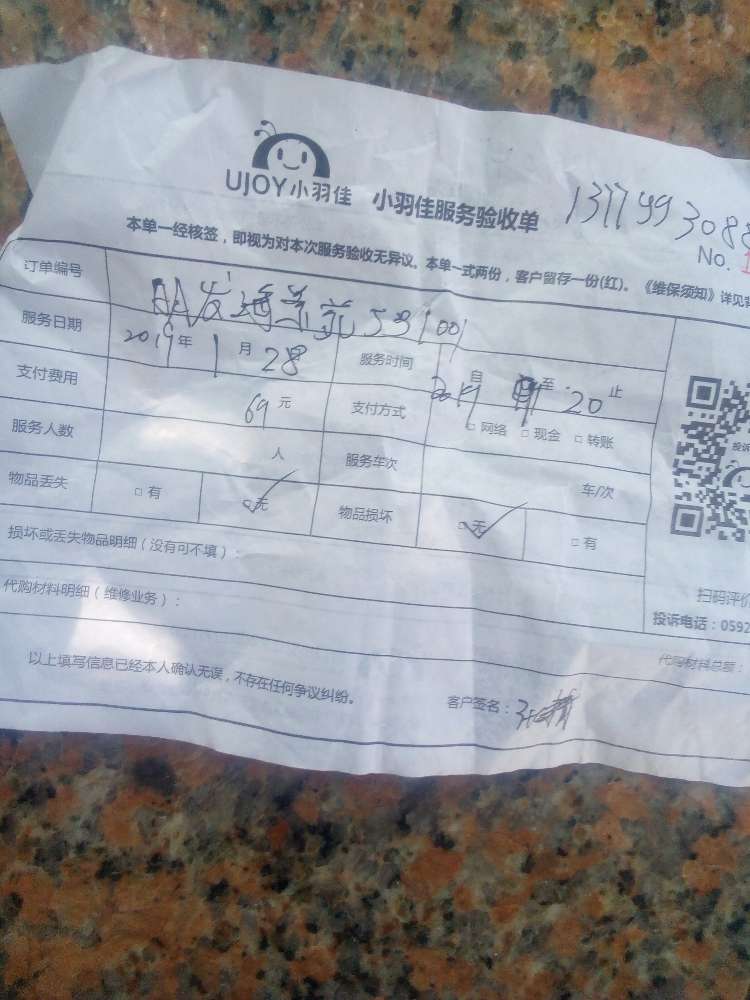 UJOY小羽佳 小羽佳服务验收单
No. 1
本单一经核签，即视为对本次服务验收无异议。本单一式两份，客户留存一份(红)。《维保须知》详见
订单编号
服务日期 2019年 1月 28 服务时间 自 至 20 止
支付费用 69元 支付方式 □ 网络 □ 现金 □ 转账
服务人数 人 服务车次 车/次
物品丢失 □ 有 □ 无 物品损坏 □ 无 □ 有
损坏或丢失物品明细（没有可不填）：
代购材料明细（维修业务）：
扫码评价
投诉电话：0592
代购材料总额：
以上填写信息已经本人确认无误，不存在任何争议纠纷。
客户签名：